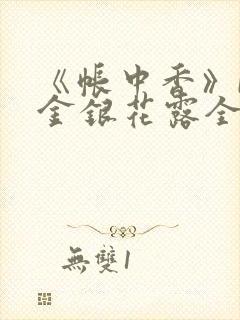 《帳中香》
金銀花露全
無雙1